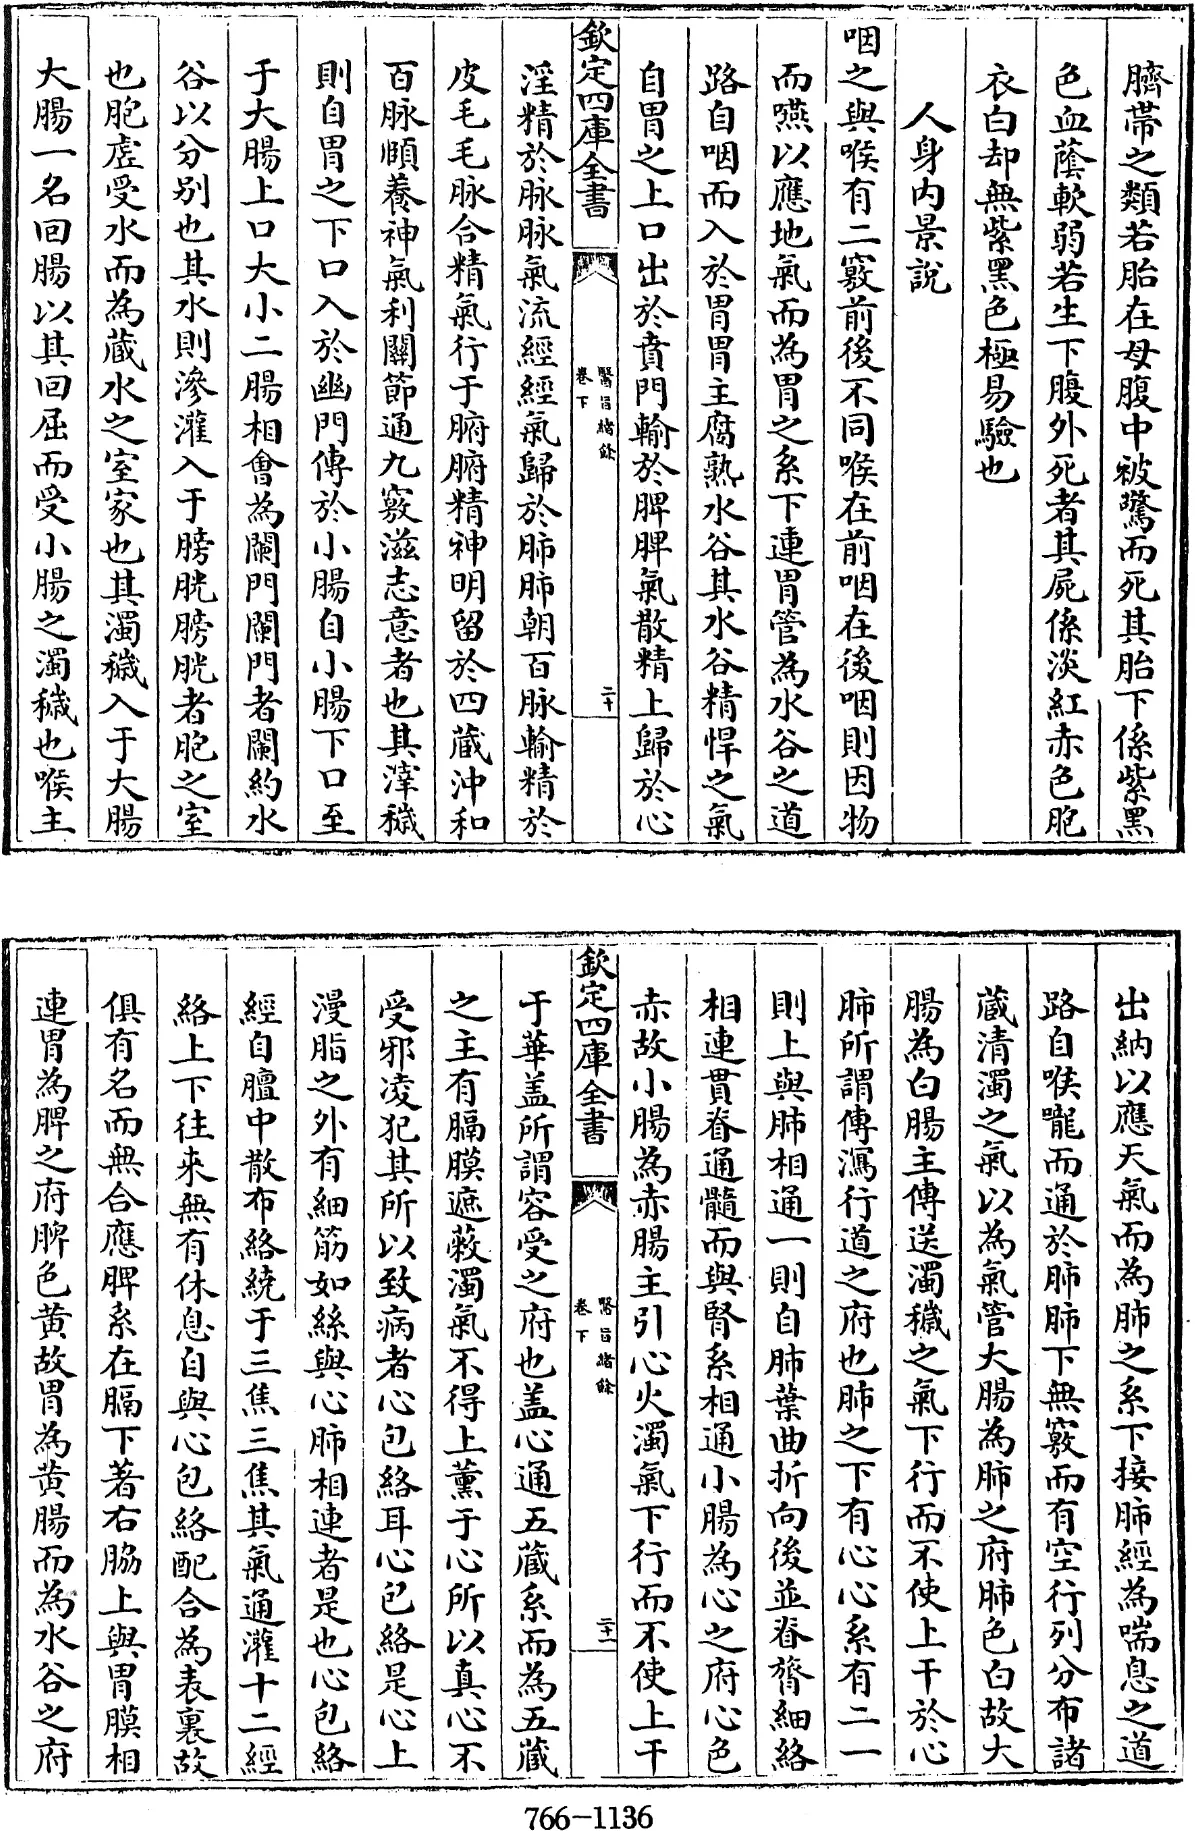 臍帶之類若胎在母腹中被驚而死其胎下係紫黑
色血蔭軟弱若生下腹外死者其屍係淡紅赤色胞
衣白却無紫黑色極易驗也
人身内景説
咽之與喉有二竅前後不同喉在前咽在後咽則因物
而嚥以應地氣而為胃之系下連胃管為水谷之道
路自咽而入於胃胃主腐熟水谷其水谷精悍之氣
自胃之上口出於賁門輸於脾脾氣散精上歸於心
欽定四庫全書
醫旨緒餘
卷下
二十
淫精於脉脉氣流經經氣歸於肺肺朝百脉輸精於
皮毛毛脉合精氣行于腑腑精神明留於四蔵沖和
百脉頤養神氣利關節通九竅滋志意者也其滓穢
則自胃之下口入於幽門傳於小腸自小腸下口至
于大腸上口大小二腸相會為闌門闌門者闌約水
谷以分别也其水則滲灌入于膀胱膀胱者胞之室
也胞虛受水而為蔵水之室家也其濁穢入于大腸
大腸一名回腸以其回屈而受小腸之濁穢也喉主
出納以應天氣而為肺之系下接肺經為喘息之道
路自喉嚨而通於肺肺下無竅而有空行列分布諸
蔵清濁之氣以為氣管大腸為肺之府肺色白故大
腸為白腸主傳送濁穢之氣下行而不使上干於心
肺所謂傳瀉行道之府也肺之下有心心系有二一
則上與肺相通一則自肺葉曲折向後並脊膂細絡
相連貫脊通髓而與腎系相通小腸為心之府心色
赤故小腸為赤腸主引心火濁氣下行而不使上干
欽定四庫全書
醫旨緒餘
卷下
二十一
于華盖所謂容受之府也盖心通五蔵系而為五蔵
之主有膈膜遮蔽濁氣不得上薰于心所以真心不
受邪凌犯其所以致病者心包絡耳心包絡是心上
漫脂之外有細筋如絲與心肺相連者是也心包絡
經自膻中散布絡繞于三焦三焦其氣通灌十二經
絡上下往來無有休息自與心包絡配合為表裏故
俱有名而無合應脾系在膈下著右脇上與胃膜相
連胃為脾之府脾色黄故胃為黄腸而為水谷之府
766-1136